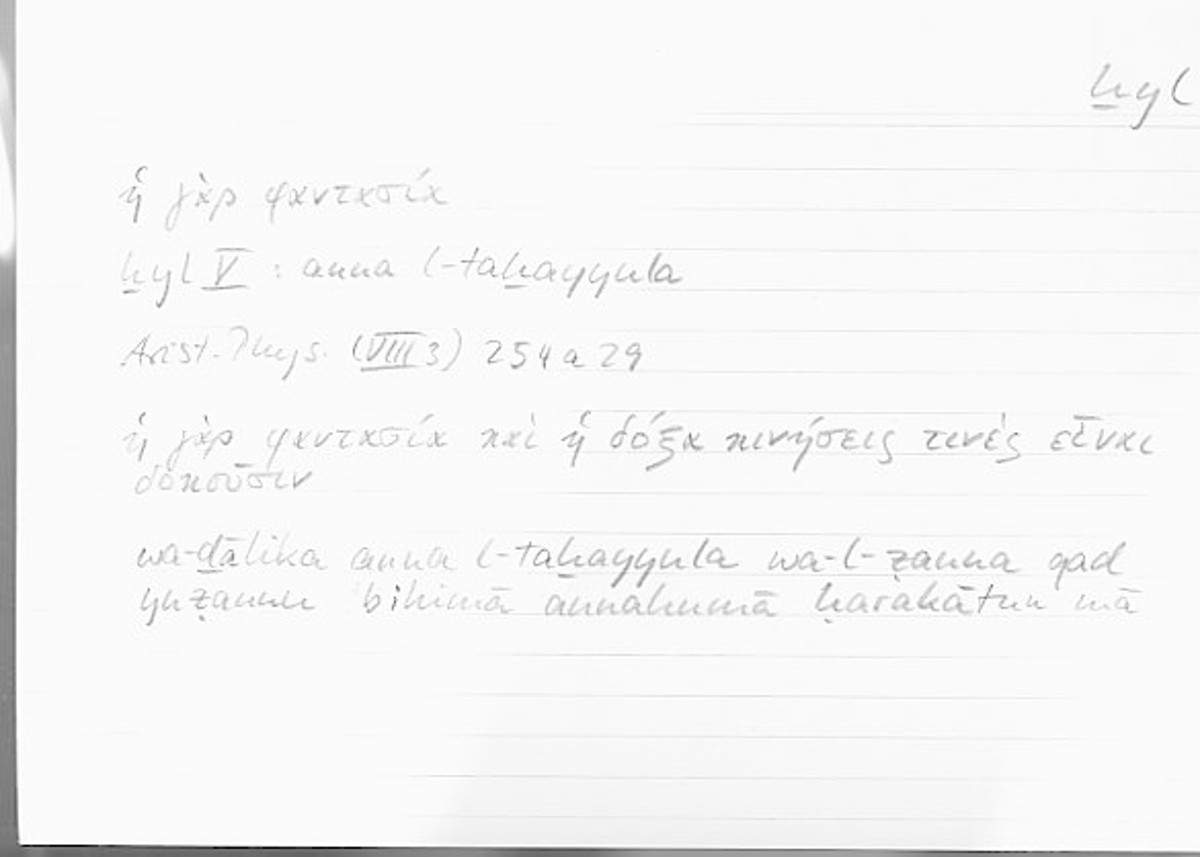 ḫyl
ἡ γὰρ φαντασία
ḫyl V : anna l-taḫayyula
Arist. Phys. (VIII 3) 254 a 29
ἡ γὰρ φαντασία καὶ ἡ δόξα κινήσεις τινές εἶναι
δοκοῦσιν
wa-ḏālika anna l-taḫayyula wa-l-ẓanna qad
yuẓannu bihimā annahumā ḥarakātun mā